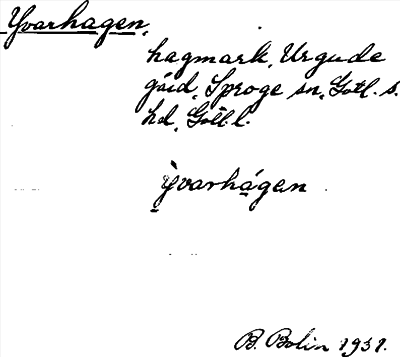 Yvarhagen,
hagmark, Urgude
gård, Sproge sn, Gotl. s.
hd, Gotl. l.
Yvarhágen
B. Bolin 1931.